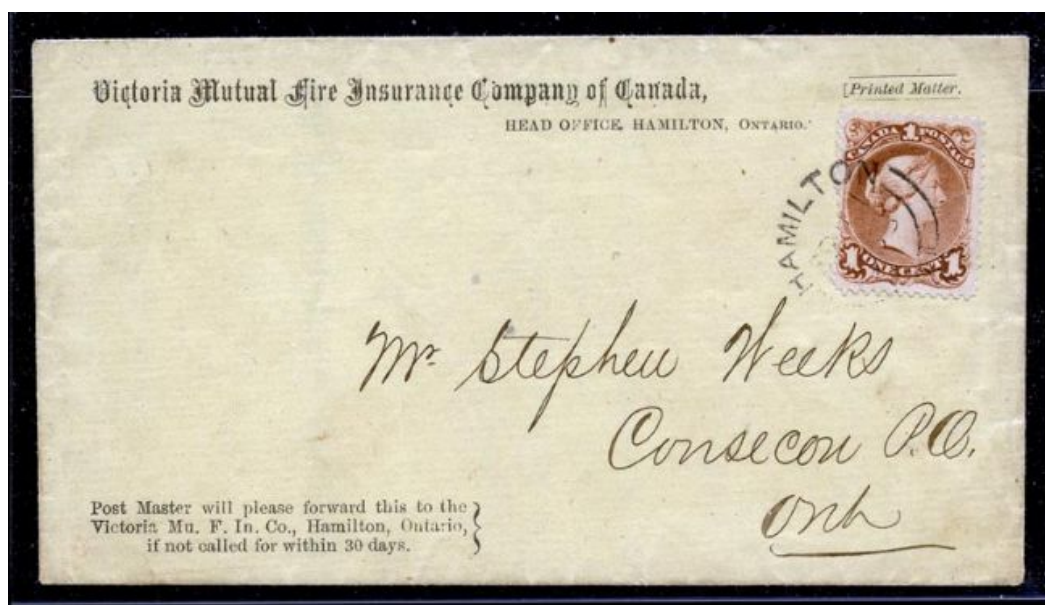 Victoria Mutual Fire Insurance Company of Canada,
HEAD OFFICE, HAMILTON, ONTARIO.
[Printed Matter.
CANADA 1 POSTAGE
HAMILTON
1 ONE CENT 1
Mr. Stephen Weeks
Consecon P.O.
Ont
Post Master will please forward this to the
Victoria Mu. F. In. Co., Hamilton, Ontario,
if not called for within 30 days.